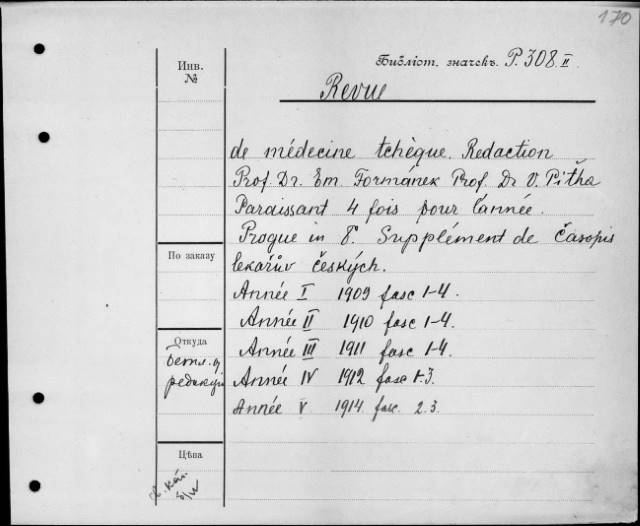 170
Инв.
№
Библіот. значекъ P. 308 II
Revue
de médecine tchèque. Redaction
Prof. Dr. Em. Formánek Prof. Dr V. Piťha
Paraissant 4 fois pour l'année.
Prague in 8°. Supplément de Časopis
lekařův českých.
Année I 1909 fasc 1-4.
Année II 1910 fasc 1-4.
Année III 1911 fasc 1-4.
Année IV 1912 fasc 1-3.
Année V 1914 fasc. 2.3.
По заказу
Откуда
редакціи
Цѣна